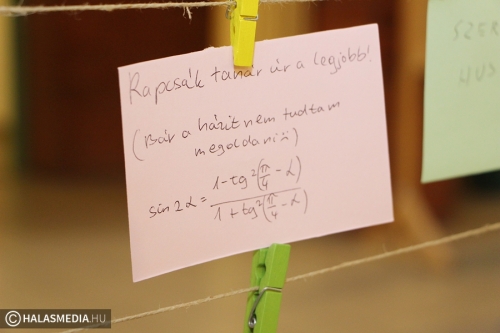 Rapcsák tanár úr a legjobb!
(Bár a házit nem tudtam
megoldani :)
sin 2α = (1 - tg²(π/4 - α)) / (1 + tg²(π/4 - α))
SZER
HUS
© HALASMEDIA.HU